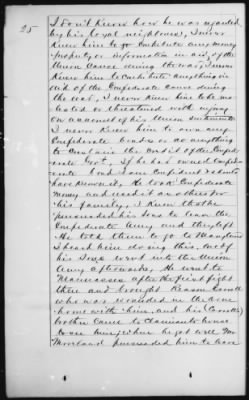 25
I don't know how he was regarded
by his loyal neighbors, I never
knew him to contribute any money
property or information in aid of the
Union Cause during the war, I never
knew him to contribute anything in
aid of the Confederate cause during
the war, I never knew him to be mo-
lested or threatened with injury
on account of his Union sentiments
I never knew him to own any
Confederate bonds or do anything
to sustain the credit of the Confede-
rate Govt, If he had owned Confede-
rate bonds I am confident I should
have known it. He took Confederate
money and used it as others for
his family, I know that he
persuaded his sons to leave the
Confederate Army and they left
He told them to go to
I heard him do this, one of
his sons went into the Union
Army afterwards. He went to
Manassas after the first fight
there and brought Carroll
who was wounded in the arm
home with him, and his (Carrolls)
brother came to claimants house
to see him, when he got well Mr
Moorland persuaded him to leave